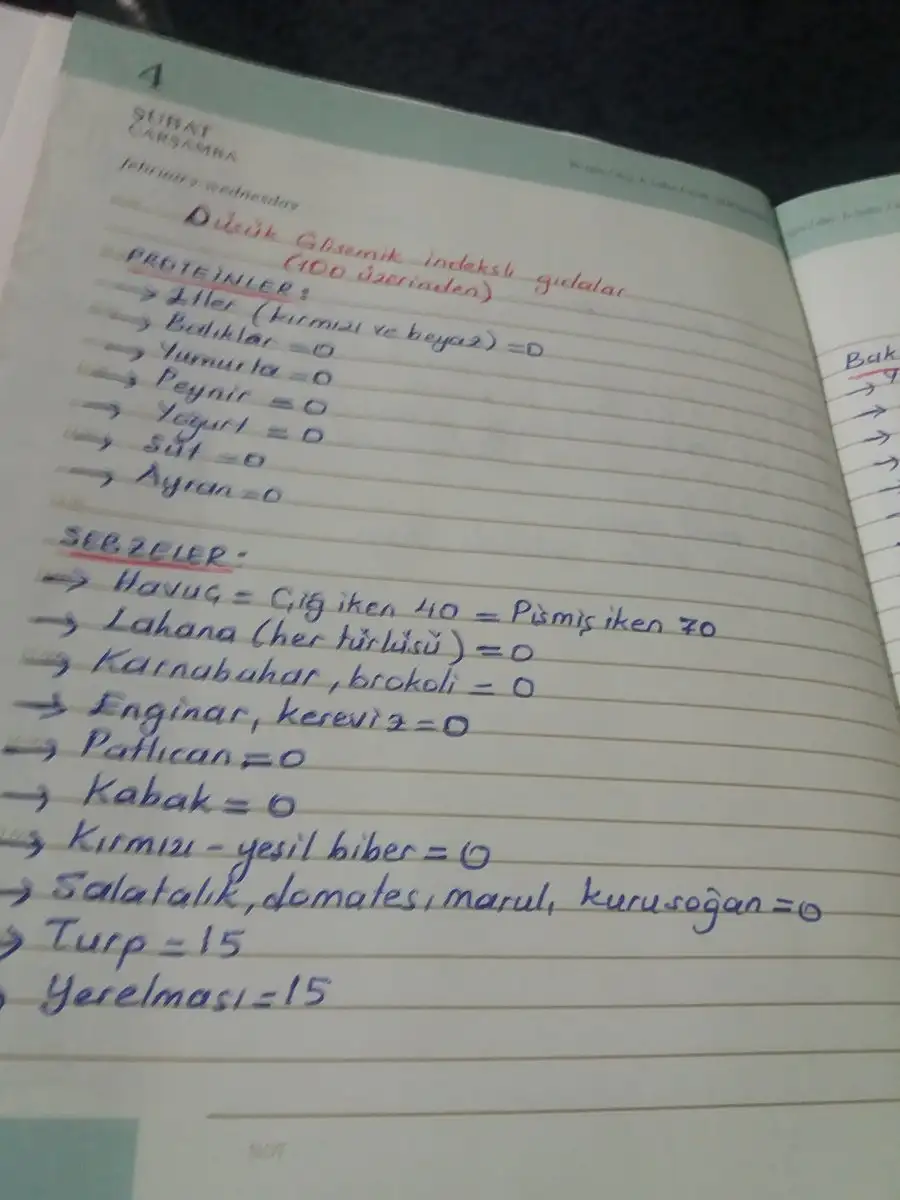 1
ŞUBAT
ÇARŞAMBA
february wednesday
Düşük Glisemik indeksli gıdalar
(100 üzerinden)
PROTEİNLER:
→ Etler (kırmızı ve beyaz) = 0
→ Balıklar = 0
→ Yumurta = 0
→ Peynir = 0
→ Yoğurt = 0
→ Süt = 0
→ Ayran = 0
SEBZELER:
→ Havuç = Çiğ iken 40 = Pişmiş iken 70
→ Lahana (her türlüsü) = 0
→ Karnabahar, brokoli = 0
→ Enginar, kereviz = 0
→ Patlıcan = 0
→ Kabak = 0
→ Kırmızı - yeşil biber = 0
→ Salatalık, domates, marul, kurusoğan = 0
→ Turp = 15
→ Yerelması = 15
Bak
→ Y
→
→
→
→